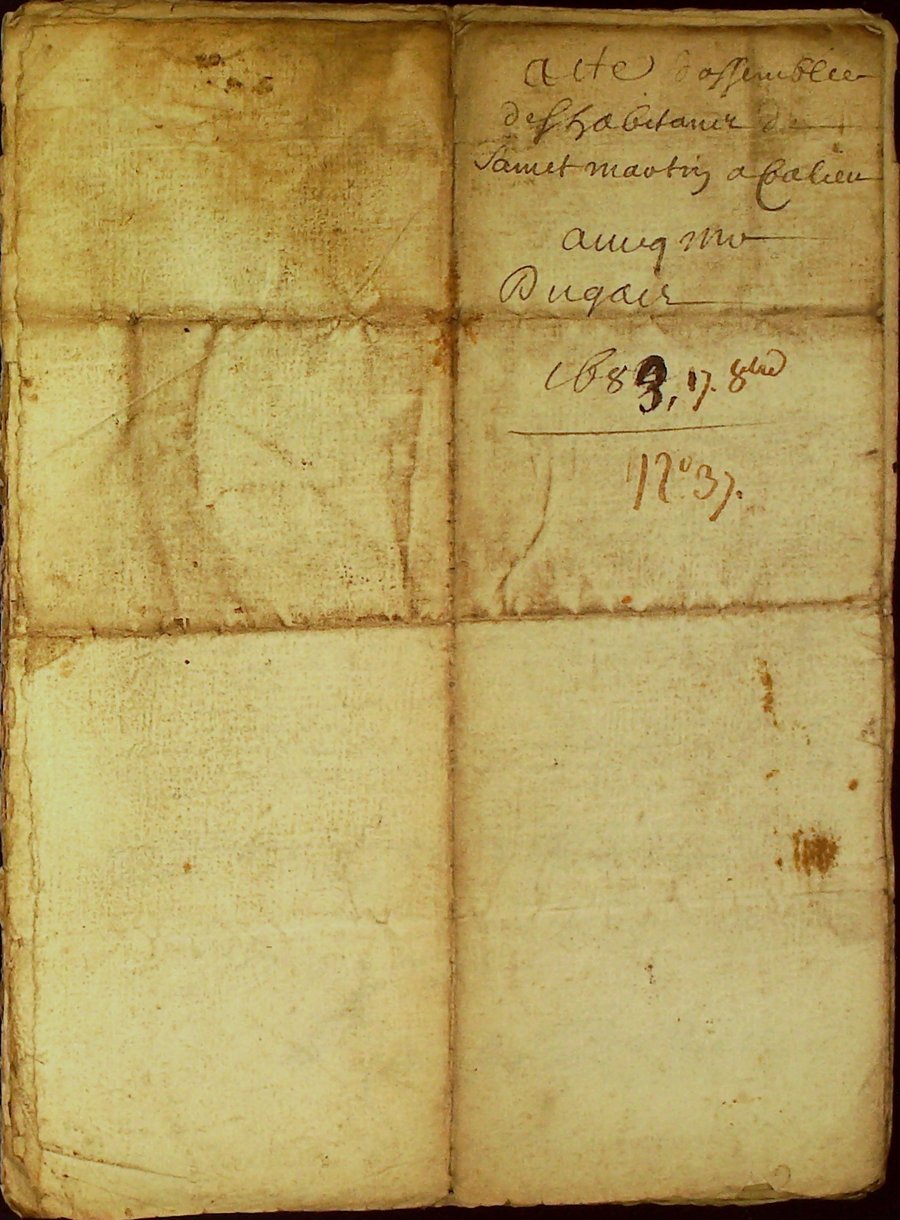 acte d'assemblee
des habitans de
Sainct martin a
auecq mr
Dugair
1683, 17. 8bre
N.° 37.